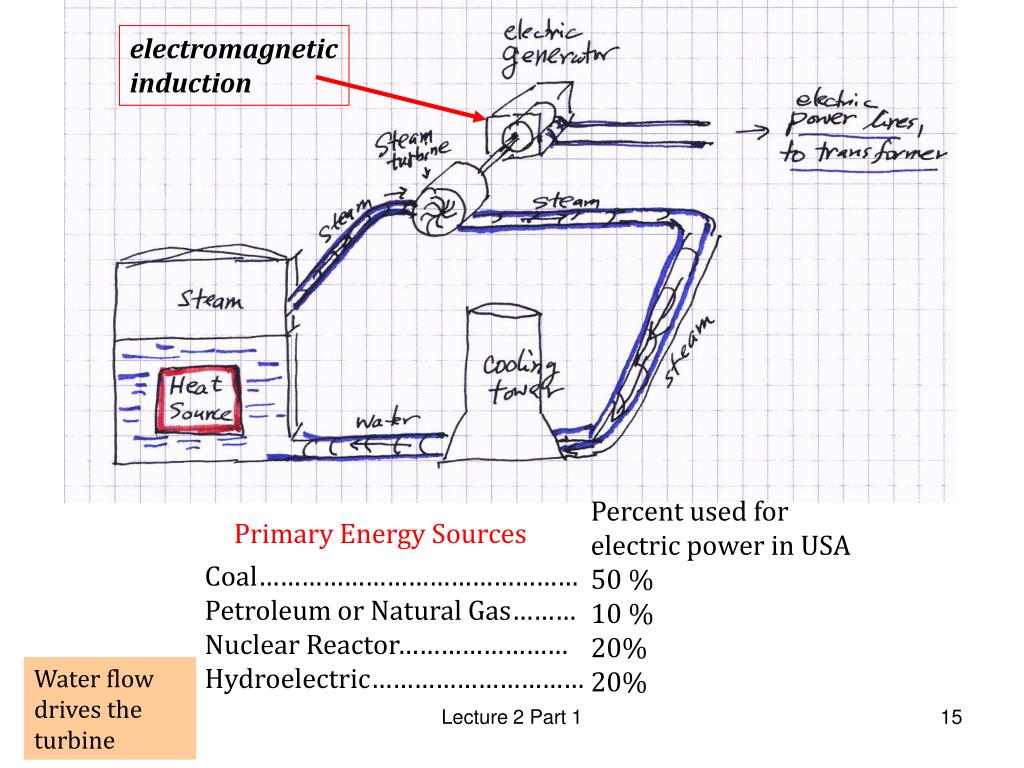 electromagnetic
induction
electric
generator
electric
power lines,
to transformer
Steam
turbine
steam
steam
steam
Steam
Heat
Source
cooling
tower
water
Primary Energy Sources
Percent used for
electric power in USA
Coal……………………………………… 50 %
Petroleum or Natural Gas……… 10 %
Nuclear Reactor…………………… 20%
Hydroelectric………………………… 20%
Water flow
drives the
turbine
Lecture 2 Part 1
15